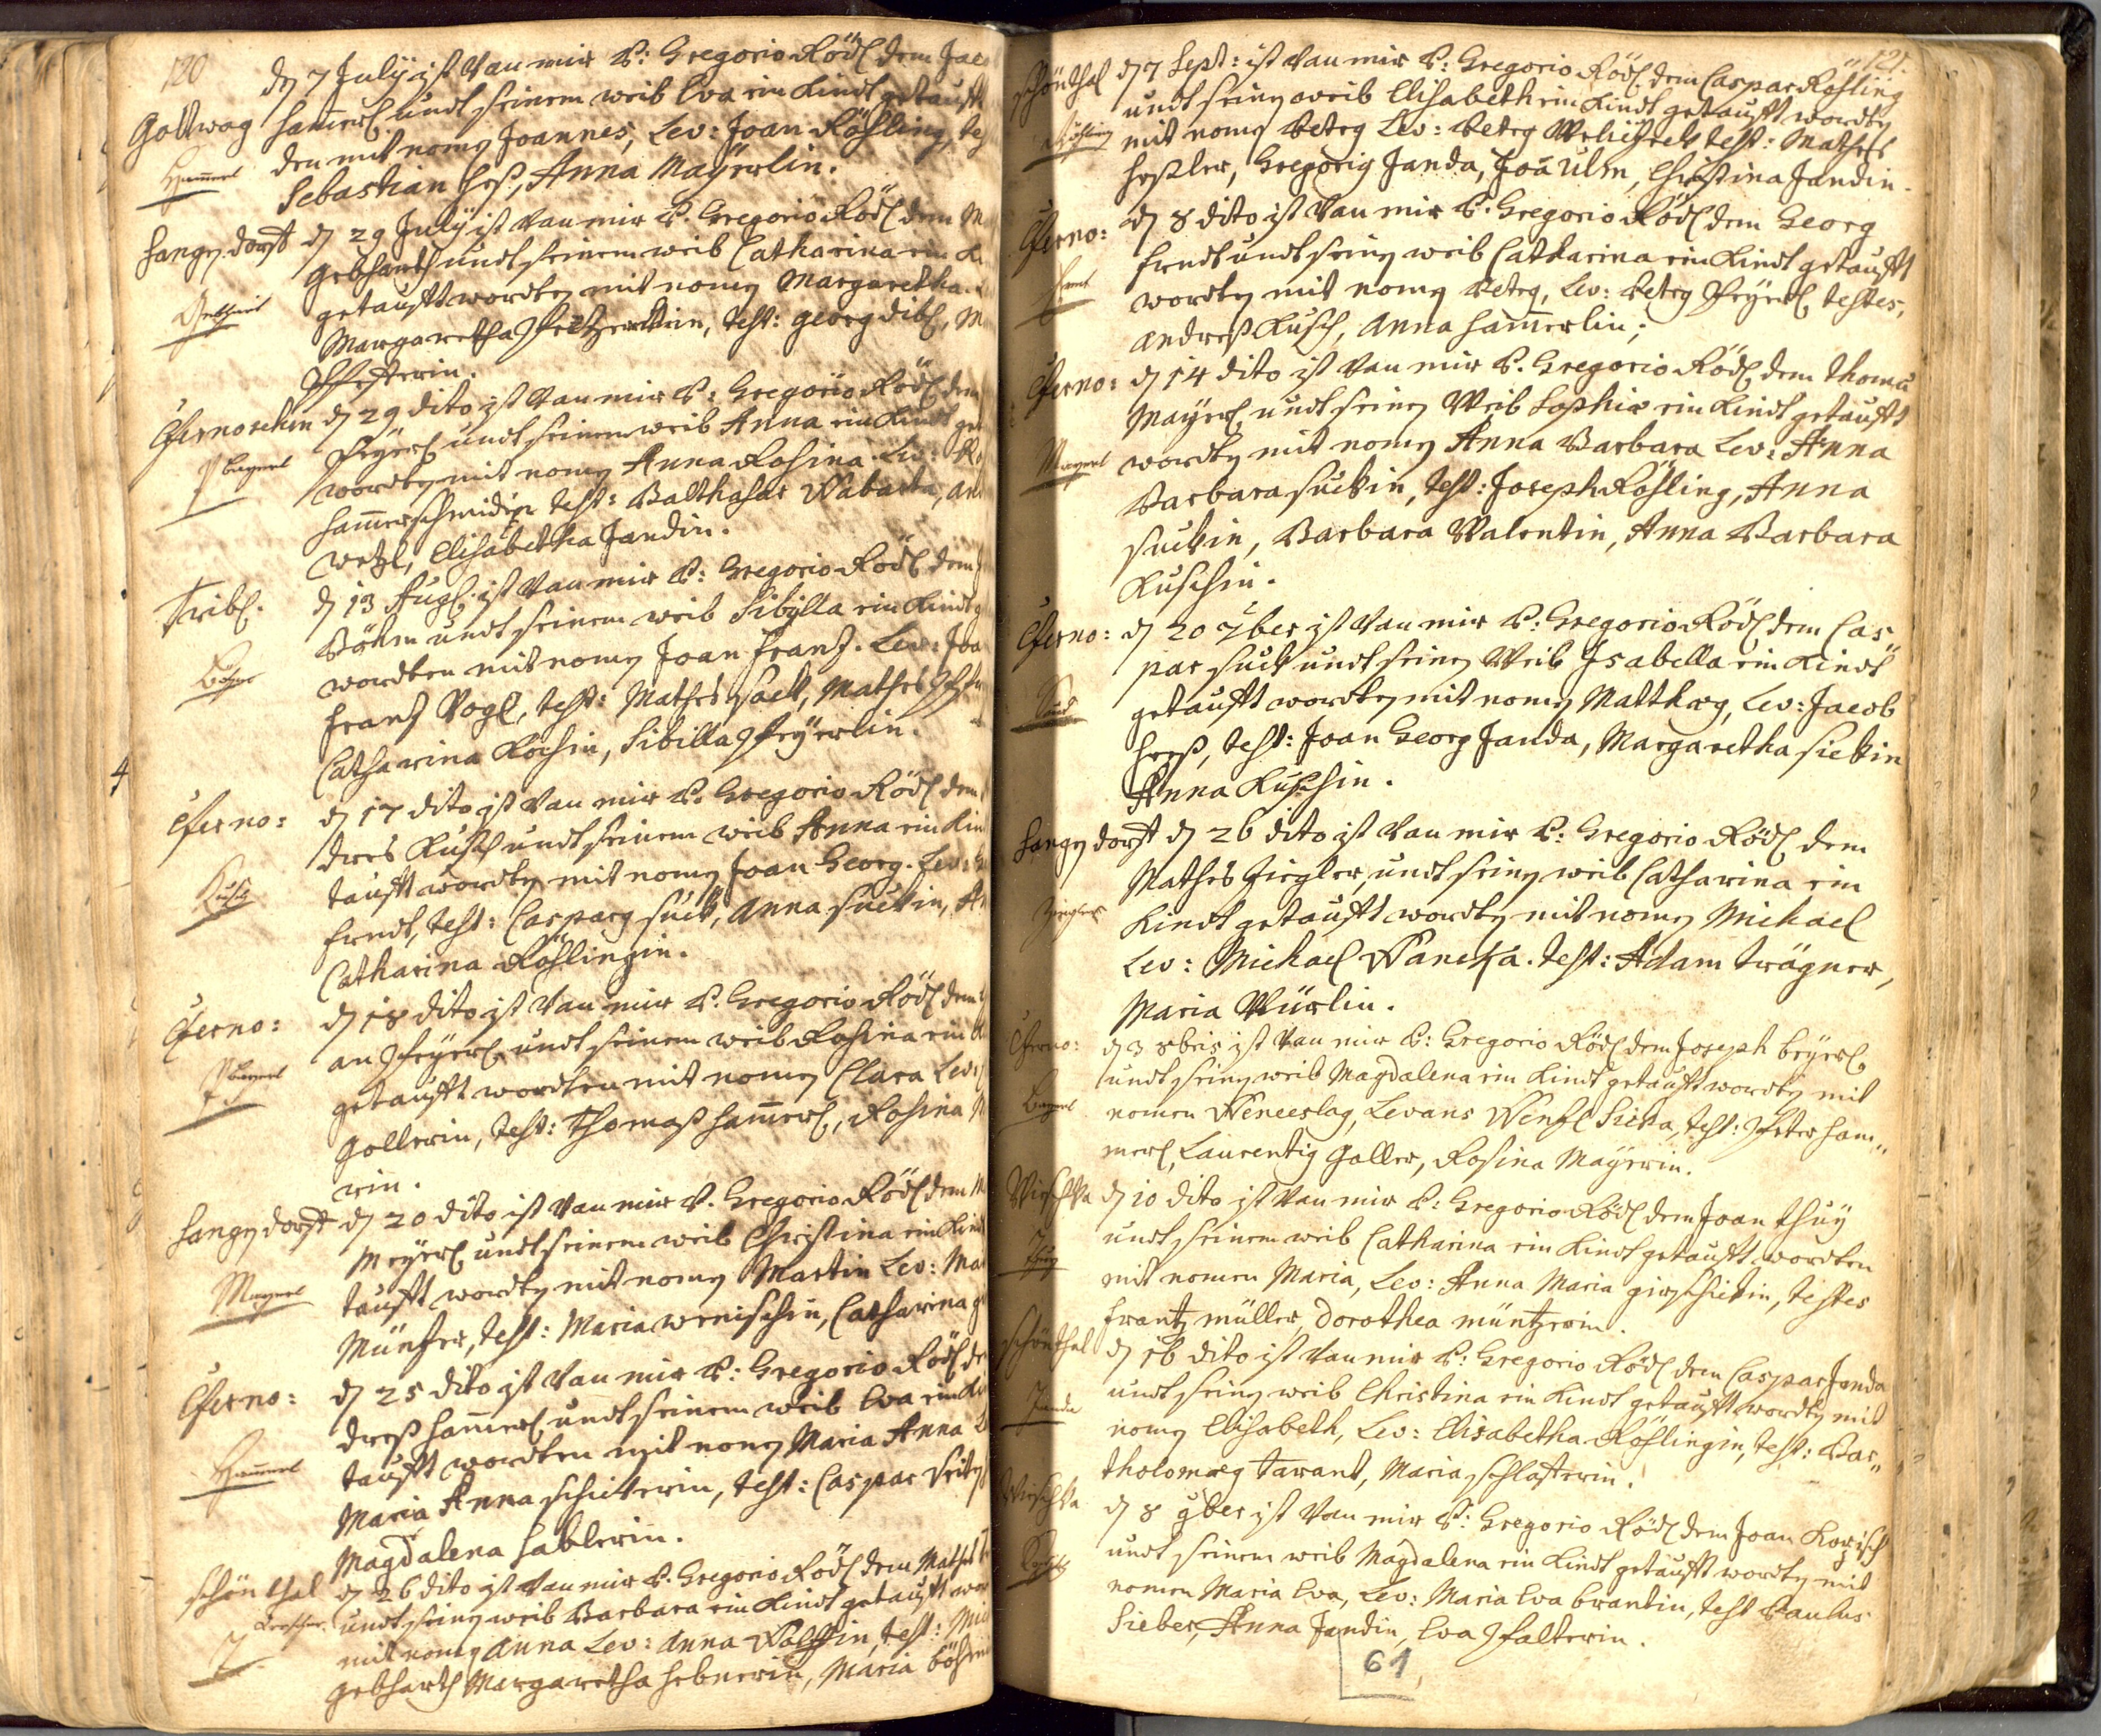 120
dẽ 7 Julÿ ist Van mir P: Gregorio Rödl dem Jac
Gottwag
Ham̄erl undt seinem weib Eva ein Kindt getaufft
Ham̄erl
den mit nomẽ Joannes, Lev: Joan Rößling, tes
Sebastian Heß, Anna Maÿerlin.
Hangẽdorff dẽ 29 Julÿ ist Van mir P. Gregorio Rödl dem M
Gebhardt undt seinem weib Catharina ein Ki
Gebhart
getaufft wordtẽ mit nomẽ Margaretha.
Margaretha, test: Georg dibl, M
Csernoschin dẽ 29 dito ist Van mir P: Gregorio Rödl dem
Peÿerl undt seinem weib Anna ein Kindt get
Pbayerl
wordtẽ mit nomẽ Anna Rosina. Lev: Ro
Ham̄erschmidin test: Balthasar Wabarka, and
Wetzl, Elisabetha Jandin.
Tribl.
dẽ 13 Aug: ist Van mir P: Gregorio Rödl dem
Böhm undt seinem weib Sibÿlla ein Kindt g
Böhm
wordten mit nomẽ Joan Frantz. Lev: Joa
Frantz Vogl, test: Mathes Sack, Mathes
Catharina Kochin, Sibilla Pfeÿerlin.
Cserno:
dẽ 17 dito ist Van mir P. Gregorio Rödl dem
dres Kusch undt seinem weib Anna ein Kin
Kusch
taufft wordtẽ mit nomẽ Joan Georg. Lev: G
Ferndt, test: Casparg Suck, Anna Suckin, An
Catharina Rößlingin.
Cserno:
dẽ 18 dito ist Van mir P. Gregorio Rödl dem
an Pfeÿerl undt seinem weib Rosina ein K
Pbayerl
getaufft wordten mit nomẽ Clara Lev:
Gollerin, test: Thomaß Ham̄erl, Rosina M
rin.
Hangẽdorff dẽ 20 dito ist Van mir P. Gregorio Rödl dem M
Meÿerl undt seinem weib Christina ein Kind
Mayerl
taufft wordtẽ mit nomẽ Martin Lev: Mar
Müntzer, test: Maria Wenischin, Catharina G
Cserno:
dẽ 25 dito ist Van mir P: Gregorio Rödl de
dreß Ham̄erl undt seinem weib Eva ein Ki
Ham̄erl
taufft wordten mit nomẽ Maria Anna L
Maria Anna Schüterin, test: Caspar
Magdalena Hablerin.
Schönthal dẽ 26 dito ist Van mir P. Gregorio Rödl dem Mathes
undt seinẽ weib Barbara ein Kindt getaufft wor
mit nomẽ Anna Lev: Anna, test: Mic
Gebhardt Margaretha Hebnerin, Maria Böhmi
121.
Schönthal dẽ 7 Sept: ist Van mir P: Gregorio Rödl dem Caspar Rößling
undt seinẽ weib Elisabeth ein Kindt getaufft wordtẽ
Rößling
mit nomẽ Petrg Lev: Petrg test: Mathes
Heßler, Gregorig Janda, Joã Ulm, Christina Jandin.
Cserno:
dẽ 8 dito ist Van mir P. Gregorio Rödl dem Georg
Ferndt undt seinẽ weib Catharina ein Kindt getaufft
wordtẽ mit nomẽ Petrg, Lev: Petrg Pfeÿerl, testes,
Andreß Kusch, Anna Ham̄erlin;
Cserno: dẽ 14 dito ist Van mir P. Gregorio Rödl dem Thoma
Maÿerl undt seinẽ Weib Sophia ein Kindt getaufft
Mayerl
wordtẽ mit nomẽ Anna Barbara Lev: Anna
Barbara Suckin, test: Joseph Rößling, Anna
Suckin, Barbara Valentin, Anna Barbara
Kuschin.
Cserno: dẽ 20 7ber ist Van mir P: Gregorio Rödl dem Cas"
par Suck undt seinẽ Weib Isabella ein Kindt
Suck
getaufft wordtẽ mit nomẽ Matthæg, Lev: Jacob
Heeß, test: Joan Georg Janda, Margaretha Siekin
Anna Kuschin.
Hangẽdorff dẽ 26 dito ist Van mir P: Gregorio Rödl dem
Mathes Ziegler, undt seinẽ weib Catharina ein
Ziegler
Kindt getaufft wordtẽ mit nomẽ Michael
Lev: Michael Waneka. test: Adam Trägner,
Maria Würlin.
Cserno:
dẽ 3 8bris ist Van mir P: Gregorio Rödl dem Joseph Beÿerl
undt seinẽ weib Magdalena ein Kindt getaufft wordtẽ mit
Bayerl
nomen Wenceslag, Levans Wentzl Sicka, test: Peter Ham"
merl, Laurentig Galler, Rosina Maÿerin.
Wirschka
dẽ 10 dito ist Van mir P: Gregorio Rödl dem Joan Thuÿ
undt seinem weib Catharina ein Kindt getaufft wordten
Thuÿ
mit nomen Maria, Lev: Anna Maria Girschickin, testes
Frantz Müller, Dorothea Müntzerin.
Schönthal
dẽ 16 dito ist Van mir P: Gregorio Rödl dem Caspar Janda
undt seinẽ weib Christina ein Kindt getaufft wordtẽ mit
Janda
nomẽ Elisabeth, Lev: Elisabetha Rößlingin, test: Bar"
tholomæg Tarant, Maria Schlosterin.
Wirschka
dẽ 8 9ber ist Van mir P: Gregorio Rödl dem Joan
undt seinem weib Magdalena ein Kindt getaufft wordtẽ mit
nomen Maria Eva, Lev: Maria Eva Brantin, test Paulus
Sieber, Anna Jandin, Eva Pfalterin.
61